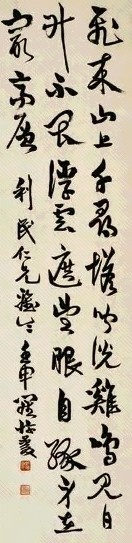 飛来山上千尋塔聞說雞鳴見日
升不畏浮雲遮望眼自緣身在
最高層
利民仁兄 壬申